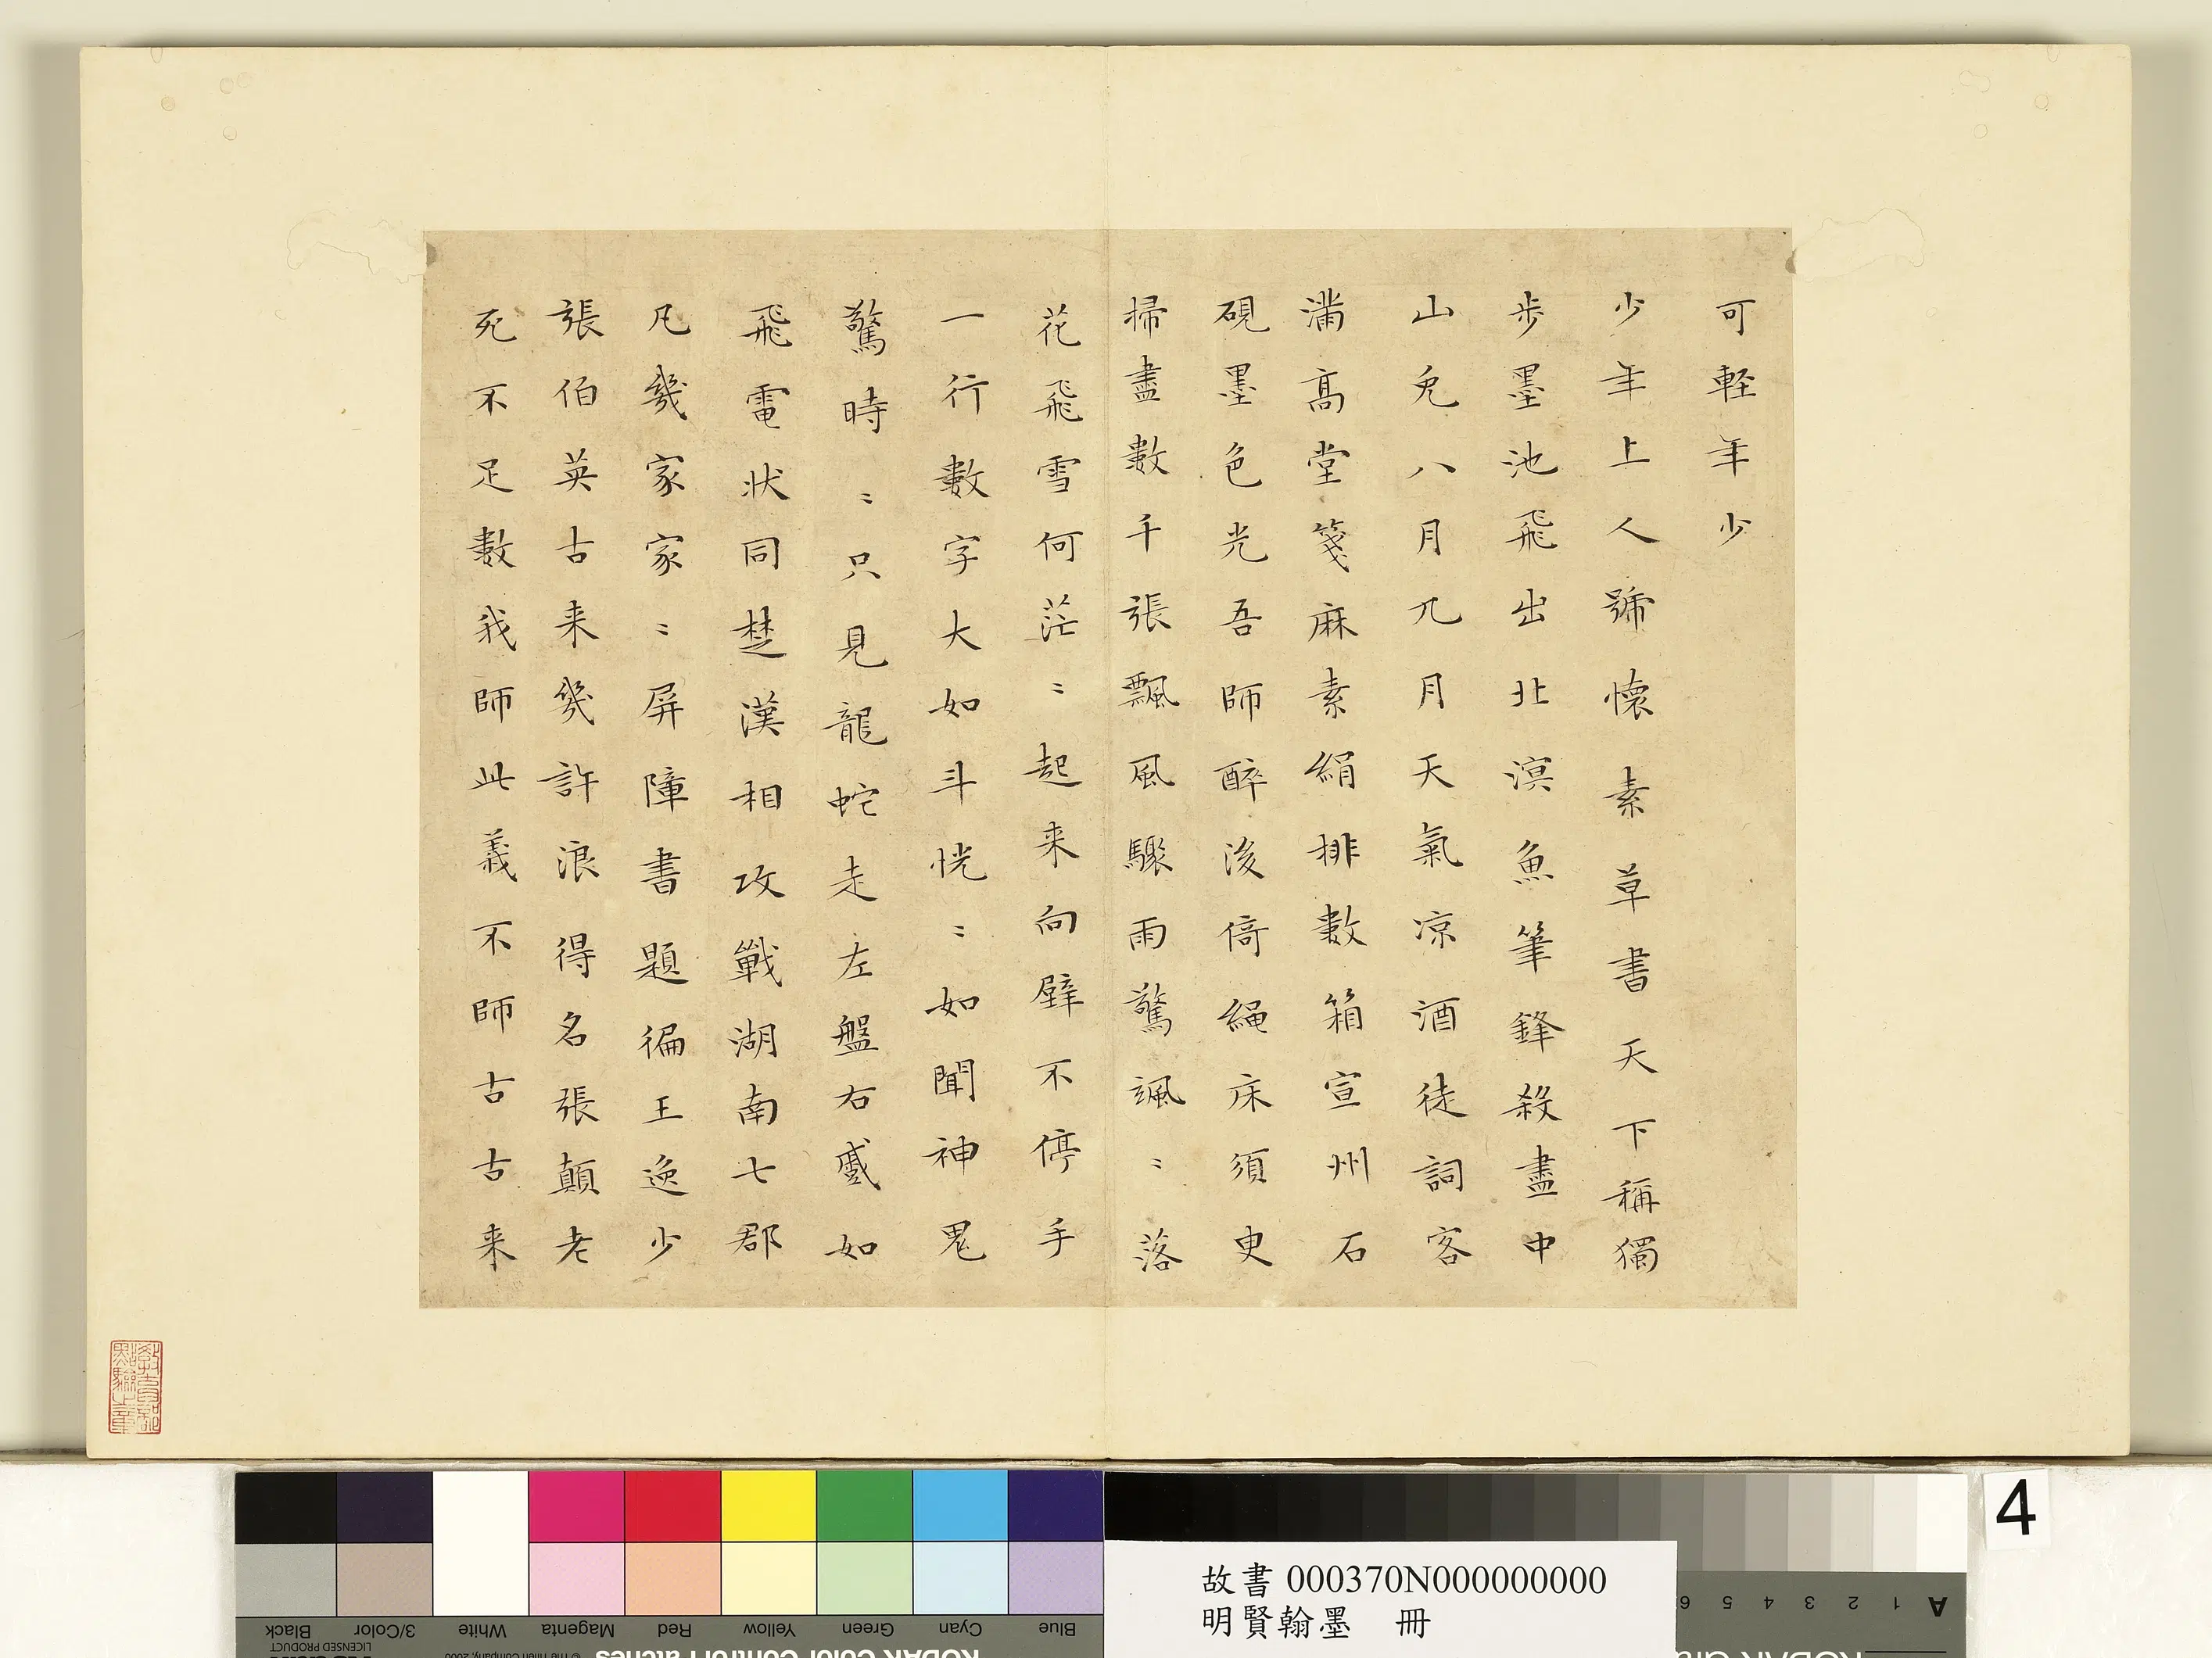 可輕年少
少年上人號懷素草書天下稱獨
步墨池飛出北溟魚筆鋒殺盡中
山兔八月九月天氣凉酒徒詞客
滿高堂箋麻素絹排數箱宣州石
硯墨色光吾師醉後倚繩床須臾
掃盡數千張飄風驟雨驚颯〻落
花飛雪何茫〻起来向壁不停手
一行數字大如斗恍〻如聞神鬼
驚時〻只見龍蛇走左盤右蹙如
飛電狀同楚漢相攻戰湖南七郡
凡幾家家〻屏障書題徧王逸少
張伯英古来幾許浪得名張顛老
死不足數我師此義不師古古来
教育部
點驗之章
4
故書 000370N000000000
明賢翰墨 冊
Black
3/Color
White
Magenta
Red
Yellow
Green
Cyan
Blue
LICENSED PRODUCT
© The Tiffen Company, 2000
KODAK Color Control Patches
A 1 2 3 4 5 6